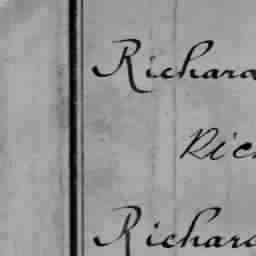 Richard
Ric
Richard